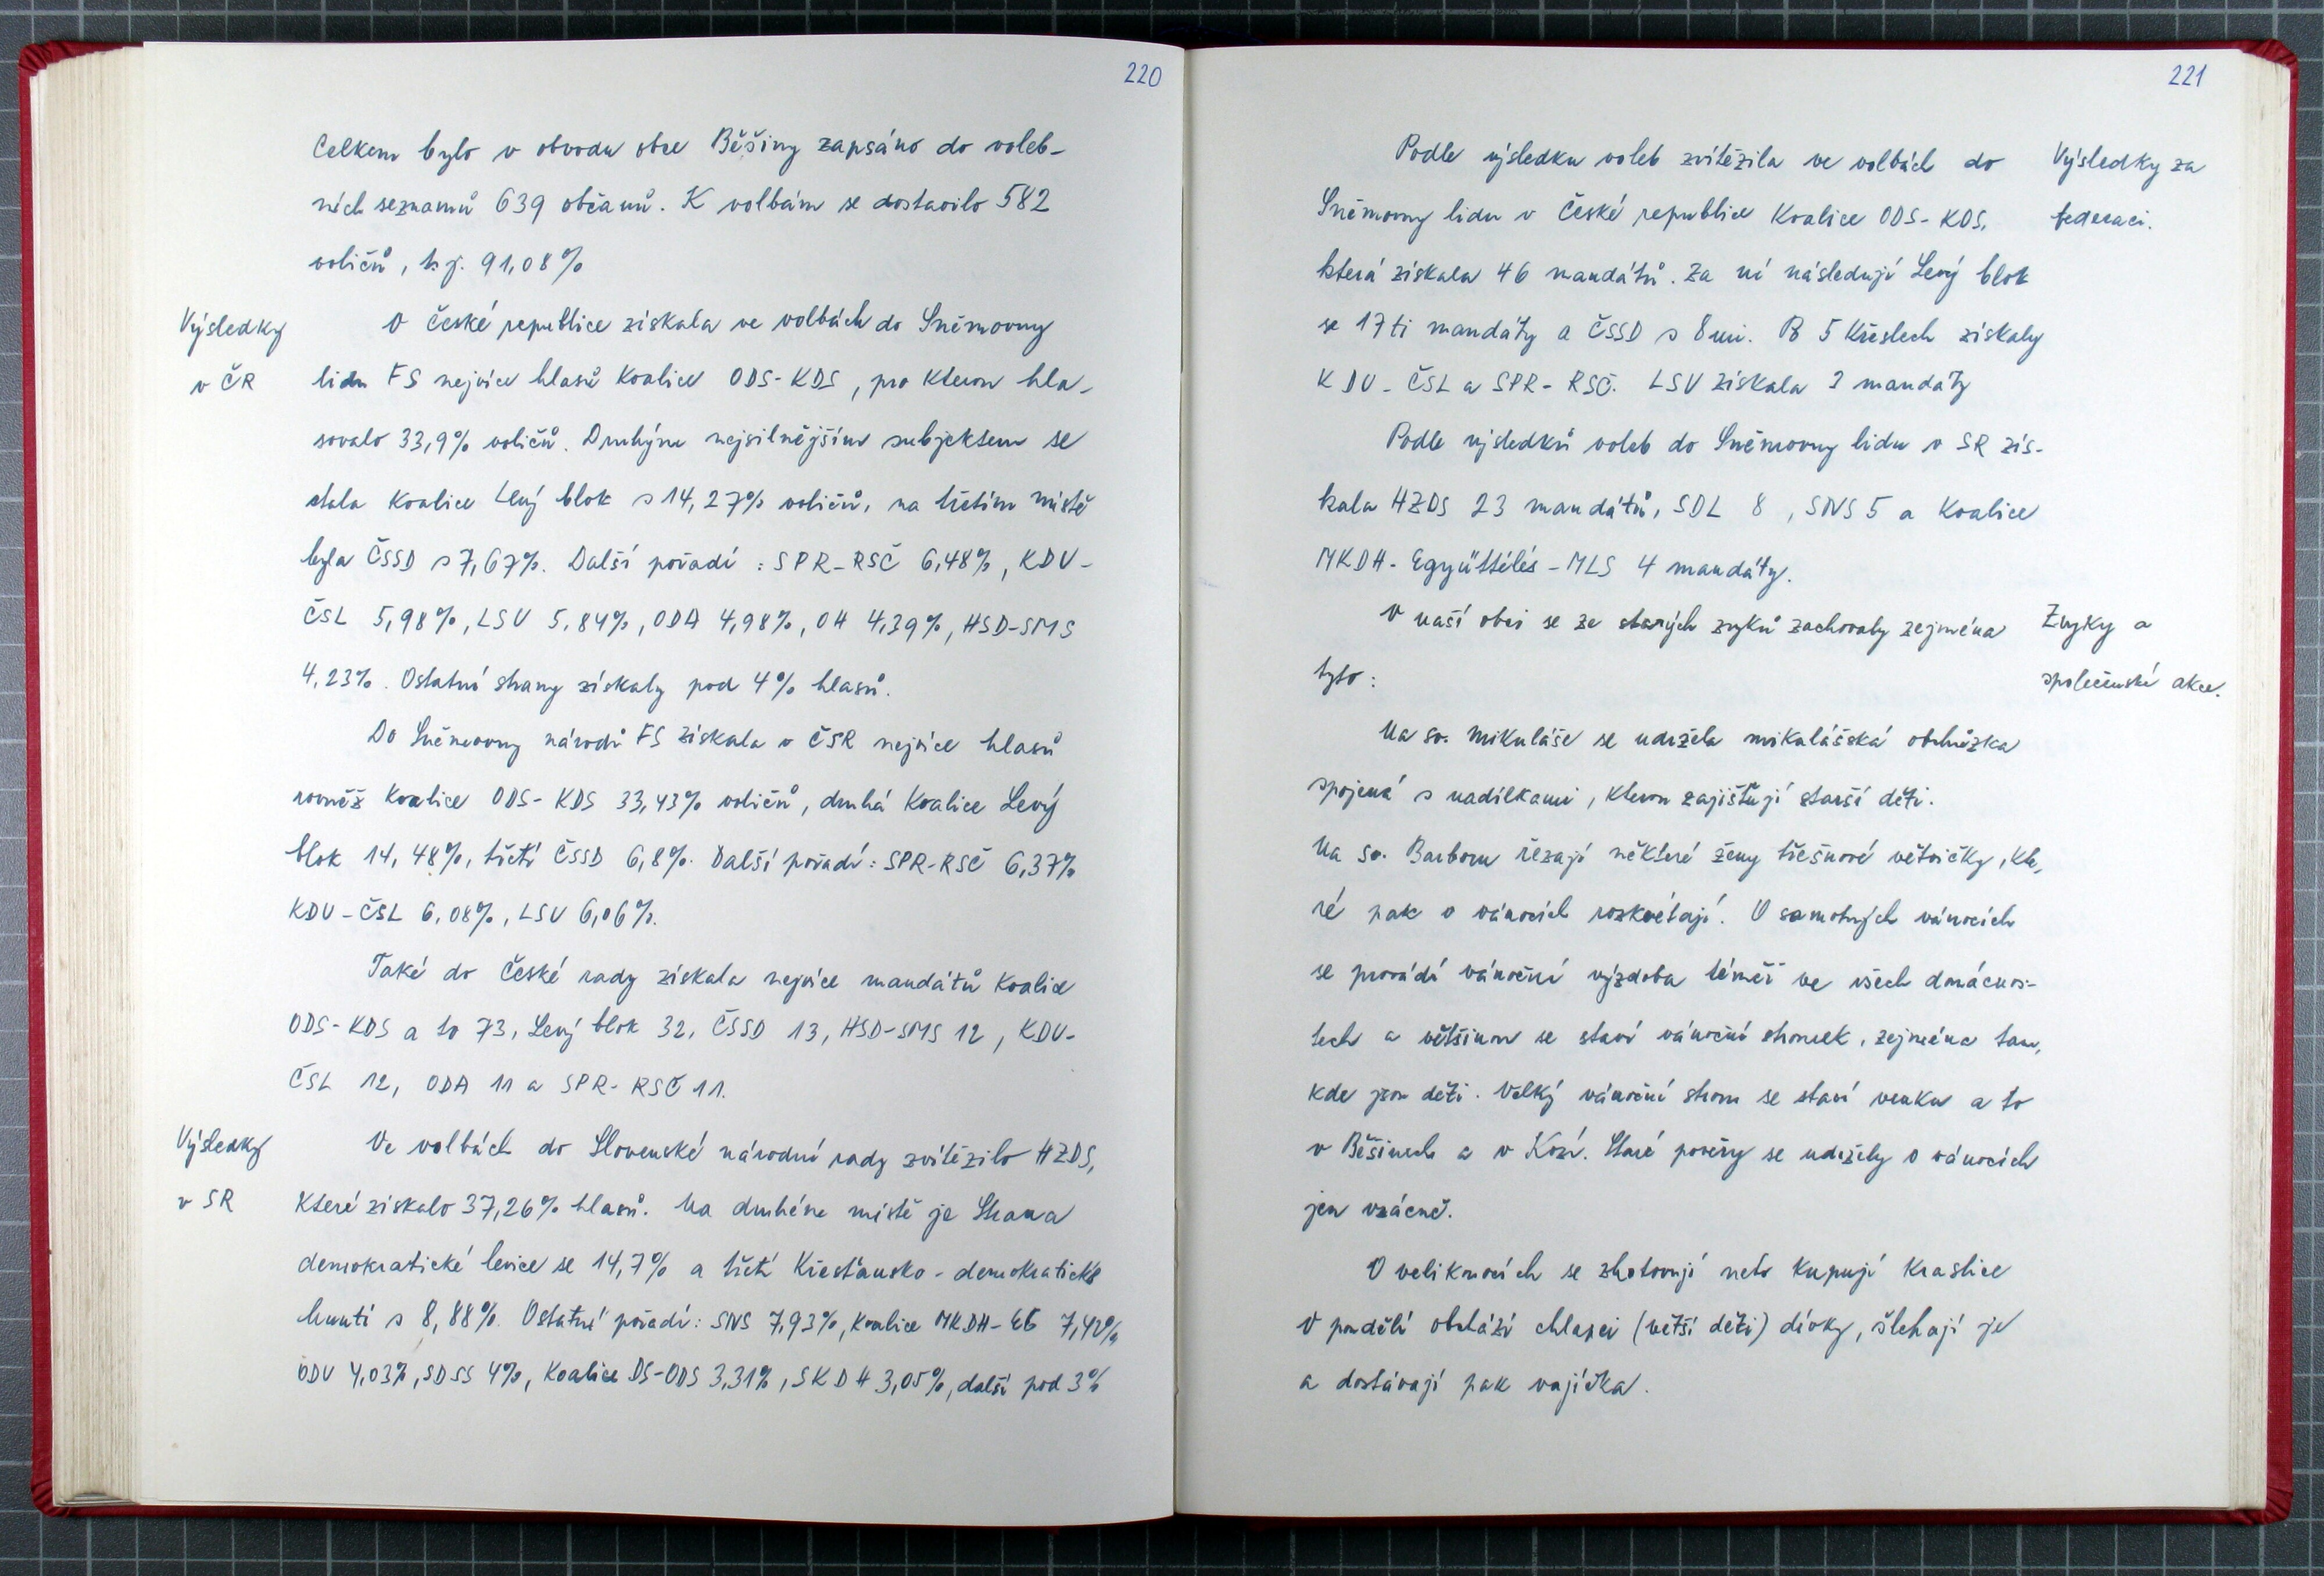 220
Celkem bylo v obvodu obce Běšiny zapsáno do voleb-
ních seznamů 639 občanů. K volbám se dostavilo 582
voličů, t.j. 91,08%
Výsledky
v ČR
V České republice získala ve volbách do Sněmovny
lidu FS nejvíce hlasů Koalice ODS-KDS, pro kterou hla-
sovalo 33,9% voličů. Druhým nejsilnějším subjektem se
stala Koalice Levý blok s 14,27% voličů, na třetím místě
byla ČSSD s 7,67%. Další pořadí: SPR-RSČ 6,48%, KDU-
ČSL 5,98%, LSU 5,84%, ODA 4,98%, OH 4,39%, HSD-SMS
4,23%. Ostatní strany získaly pod 4% hlasů.
Do Sněmovny národů FS získala v ČSR nejvíce hlasů
rovněž Koalice ODS-KDS 33,43% voličů, druhá Koalice Levý
blok 14,48%, třetí ČSSD 6,8%. Další pořadí: SPR-RSČ 6,37%
KDU-ČSL 6,08%, LSU 6,06%.
Také do České rady získala nejvíce mandátů Koalice
ODS-KDS a to 73, Levý blok 32, ČSSD 13, HSD-SMS 12, KDU-
ČSL 12, ODA 11 a SPR-RSČ 11.
Výsledky
v SR
Ve volbách do Slovenské národní rady zvítězilo HZDS,
Které získalo 37,26% hlasů. Na druhém místě je Strana
demokratické levice se 14,7% a třetí Křesťansko-demokratické
hnutí s 8,88%. Ostatní pořadí: SNS 7,93%, Koalice MKDH-EG 7,42%,
ODU 4,03%, SDSS 4%, Koalice DS-ODS 3,31%, SKDH 3,05%, další pod 3%
221
Podle výsledku voleb zvítězila ve volbách do
Sněmovny lidu v České republice Koalice ODS-KDS,
která získala 46 mandátů. Za ní následují Levý blok
se 17ti mandáty a ČSSD s 8mi. Po 5 Křeslech získaly
KDU-ČSL a SPR-RSČ. LSU získala mandáty
Výsledky za
federaci.
Podle výsledků voleb do Sněmovny lidu v SR zís-
kala HZDS 23 mandátů, SDL 8, SNS 5 a Koalice
MKDH-Együttélés-MLS 4 mandáty.
V naší obci se ze starých zvyků zachovaly zejména
tyto:
Zvyky a
společenské akce.
Na sv. Mikuláše se udržela mikulášská obchůzka
spojená s nadílkami, kterou zajišťují starší děti.
Na sv. Barboru řezají některé ženy třešňové větvičky, kte-
ré pak o vánocích rozkvétají. O samotných vánocích
se provádí vánoční výzdoba téměř ve všech domácnos-
tech a většinou se staví vánoční stromek, zejména tam,
kde jsou děti. Velký vánoční strom se staví venku a to
v Běšinech a v Kozí. Staré pověry se udržely o vánocích
jen vzácně.
O velikonocích se zhotovují nebo kupují kraslice
V pondělí obchází chlapci (větší děti) dívky, šlehají je
a dostávají pak vajíčka.